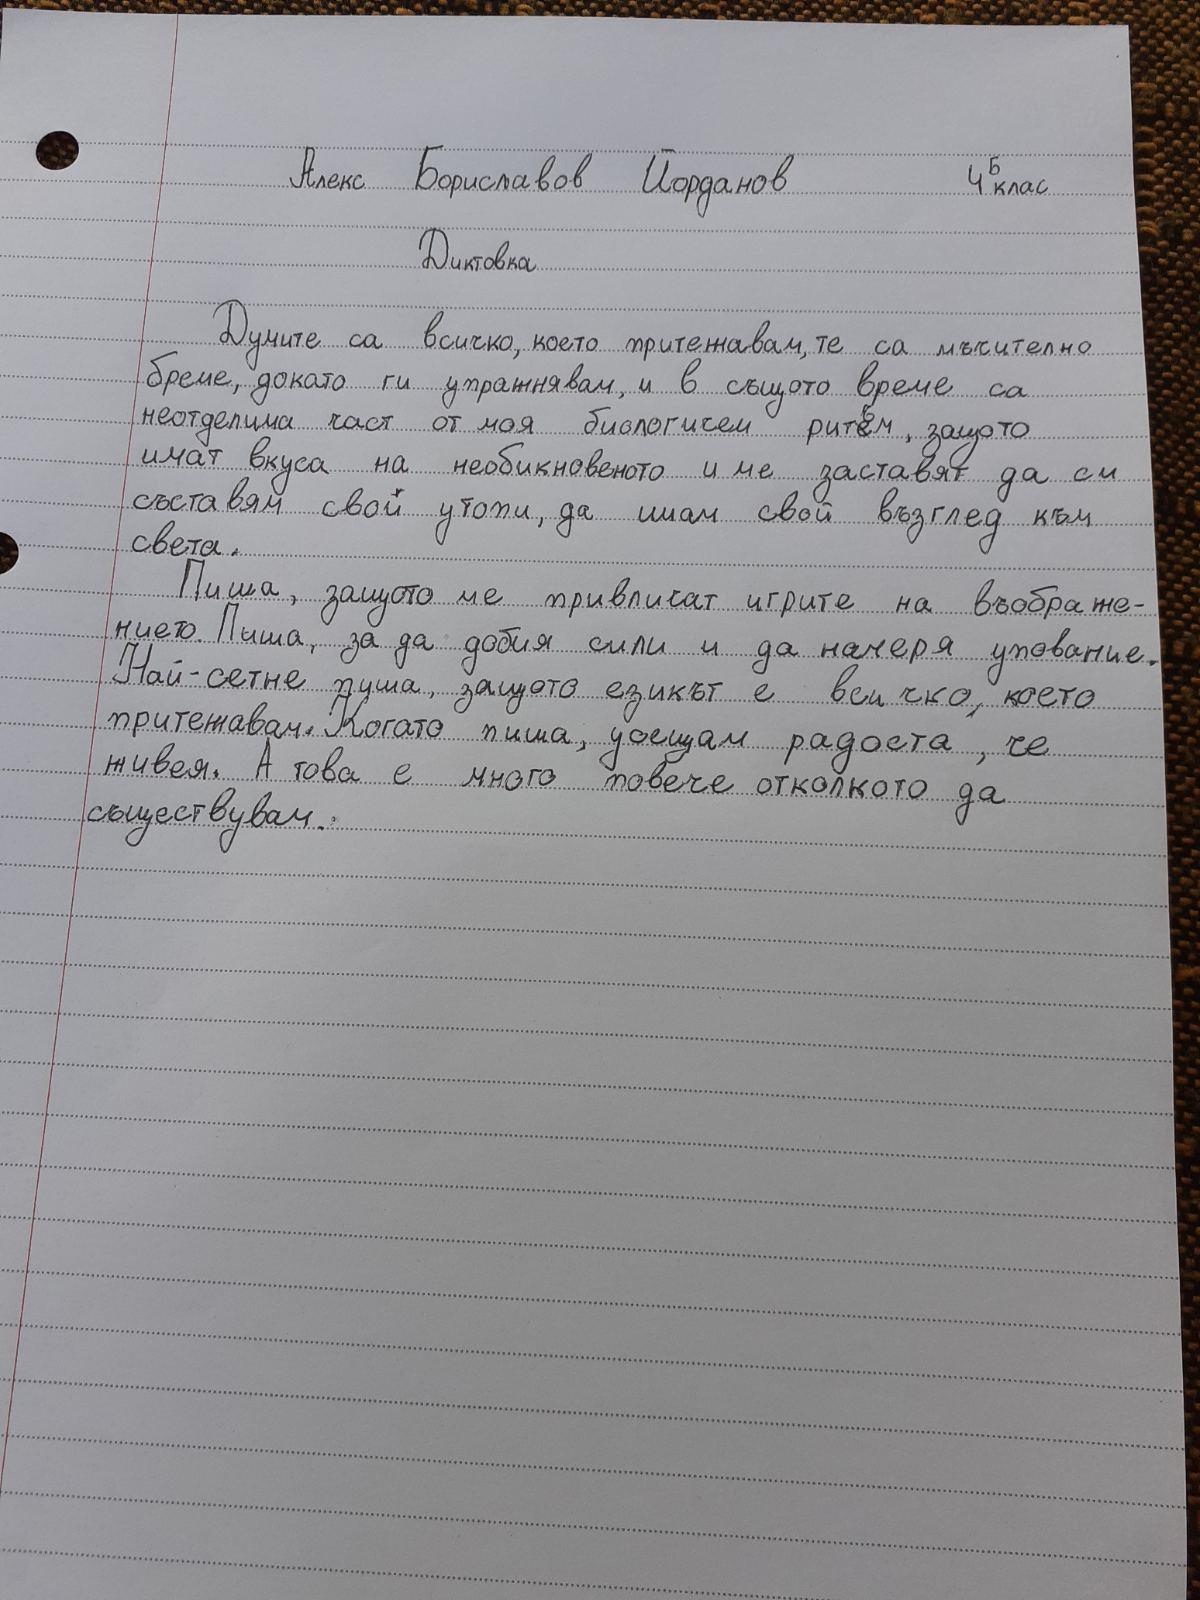 Алекс Бориславов Йорданов 4Б клас
Диктовка
Думите са всичко, което притежавам, те са мъчително
бреме, докато ги упражнявам, и в същото време са
неотделима част от моя биологичем ритъм, защото
имат вкуса на необикновеното и ме заставят да си
съставям свой утопи, да имам свой възглед към
света.
Пиша, защото ме привличат игрите на въображе-
нието. Пиша, за да добия сили и да намеря упование.
Най-сетне пиша, защото езикът е всичко, което
притежавам. Когато пиша, усещам радоста, че
живея. А това е много повече отколкото да
съществувам.